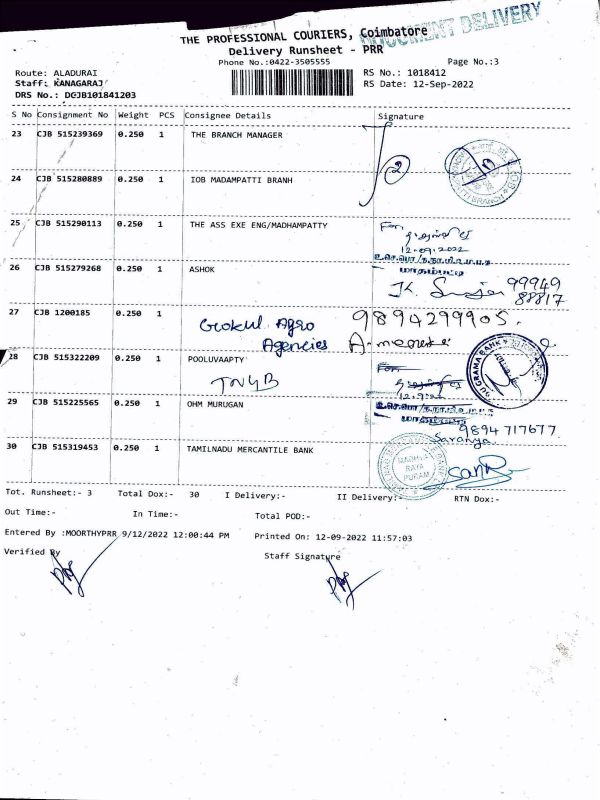 DOCUMENT DELIVERY
THE PROFESSIONAL COURIERS, Coimbatore
Delivery Runsheet - PRR
Phone No.:0422-3505555
Page No.:3
Route: ALADURAI
RS No.: 1018412
Staff: KANAGARAJ
RS Date: 12-Sep-2022
DRS No.: DCJB101841203
S No Consignment No Weight PCS Consignee Details Signature
23 CJB 515239369 0.250 1 THE BRANCH MANAGER
24 CJB 515280889 0.250 1 IOB MADAMPATTI BRANH
25 CJB 515290113 0.250 1 THE ASS EXE ENG/MADHAMPATTY
For,
12.09.2022
மாதம்பட்டி
26 CJB 515279268 0.250 1 ASHOK
99949
88817
27 CJB 1200185 0.250 1
Gokul Agro
Agencies
9894299905.
28 CJB 515322209 0.250 1 POOLUVAAPTY
TNGB
For,
29 CJB 515225565 0.250 1 OHM MURUGAN
9894 717677.
Saranya
30 CJB 515319453 0.250 1 TAMILNADU MERCANTILE BANK
Tot. Runsheet:- 3 Total Dox:- 30 I Delivery:- II Delivery:- RTN Dox:-
Out Time:- In Time:- Total POD:-
Entered By :MOORTHYPRR 9/12/2022 12:00:44 PM Printed On: 12-09-2022 11:57:03
Verified By Staff Signature